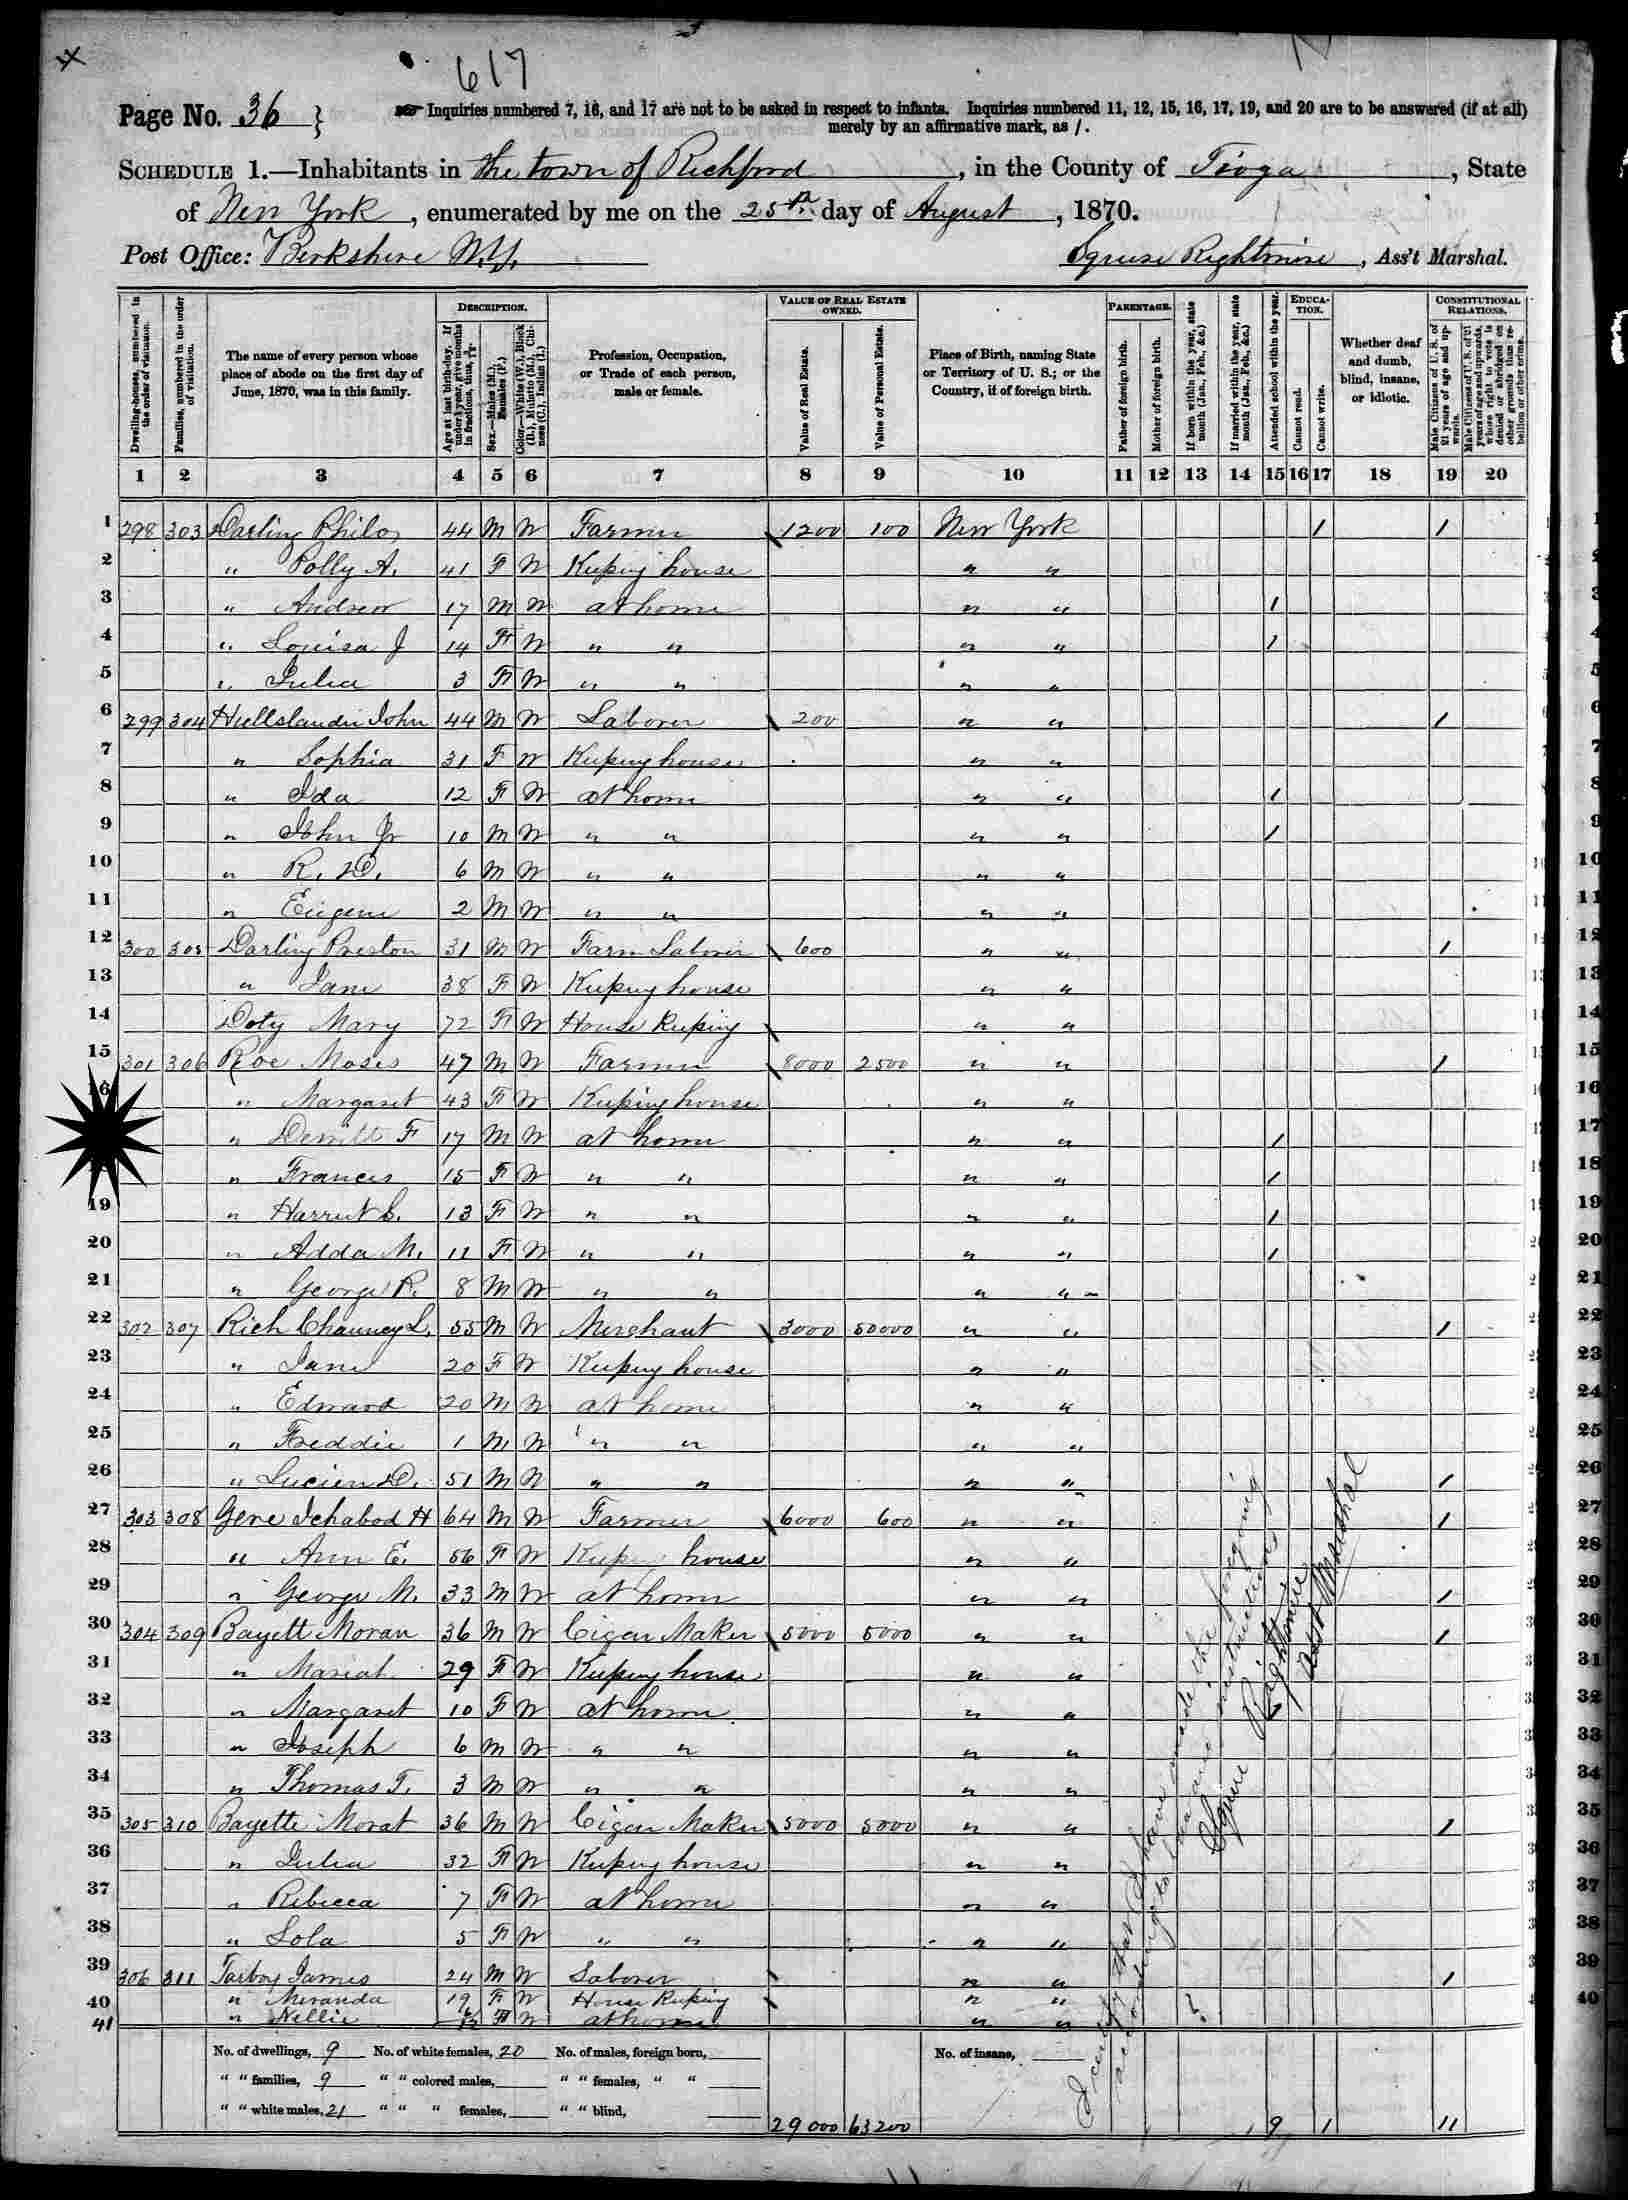 617
Page No. 36 } Inquiries numbered 7, 16, and 17 are not to be asked in respect to infants. Inquiries numbered 11, 12, 15, 16, 17, 19, and 20 are to be answered (if at all)
merely by an affirmative mark, as /.
SCHEDULE 1.—Inhabitants in the town of Richford, in the County of Tioga, State
of New York, enumerated by me on the 25th day of August, 1870.
Post Office: Berkshire N.Y. Squire Rightmire, Ass't Marshal.
Dwelling-houses, numbered in the order of visitation.
Families, numbered in the order of visitation.
The name of every person whose place of abode on the first day of June, 1870, was in this family.
DESCRIPTION.
Age at last birth-day. If under 1 year, give months in fractions, thus, 3/12
Sex.—Males (M.), Females (F.)
Color.—White (W.), Black (B.), Mulatto (M.), Chinese (C.), Indian (I.)
Profession, Occupation, or Trade of each person, male or female.
VALUE OF REAL ESTATE OWNED.
Value of Real Estate.
Value of Personal Estate.
Place of Birth, naming State or Territory of U. S.; or the Country, if of foreign birth.
PARENTAGE.
Father of foreign birth.
Mother of foreign birth.
If born within the year, state month (Jan., Feb., &c.)
If married within the year, state month (Jan., Feb., &c.)
Attended school within the year.
EDUCATION.
Cannot read.
Cannot write.
Whether deaf and dumb, blind, insane, or idiotic.
CONSTITUTIONAL RELATIONS.
Male Citizens of U. S. of 21 years of age and upwards.
Male Citizens of U. S. of 21 years of age and upwards, whose right to vote is denied or abridged on other grounds than rebellion or other crime.
1 2 3 4 5 6 7 8 9 10 11 12 13 14 15 16 17 18 19 20
1 298 303 Darling Philo 44 M W Farmer 1200 100 New York 1 1
2 " Polly A. 41 F W Keeping house " "
3 " Andrew 17 M W at home " " 1
4 " Louisa J 14 F W " " " " 1
5 " Julia 3 F W " " " "
6 299 304 Hullslander John 44 M W Laborer 200 " " 1
7 " Sophia 31 F W Keeping house " "
8 " Ida 12 F W at home " " 1
9 " John Jr 10 M W " " " " 1
10 " R. D. 6 M W " " " "
11 " Eugene 2 M W " " " "
12 300 305 Darling Preston 31 M W Farm Laborer 600 " " 1
13 " Jane 38 F W Keeping house " "
14 Doty Mary 72 F W House Keeping " "
15 301 306 Roe Moses 47 M W Farmer 8000 2500 " " 1
16 " Margaret 43 F W Keeping house " "
17 " Derritt F 17 M W at home " " 1
" Frances 15 F W " " " " 1
19 " Harriet C. 13 F W " " " " 1
20 " Adda M. 11 F W " " " " 1
21 " George R. 8 M W " " " "
22 302 307 Rich Chauncey L. 55 M W Merchant 3000 50000 " " 1
23 " Jane 20 F W Keeping house " "
24 " Edward 20 M W at home " "
25 " Freddie 1 M W " " " "
26 " Lucien D. 51 M W " " " " 1
27 303 308 Gere Ichabod H 64 M W Farmer 6000 600 " " 1
28 " Ann E. 56 F W Keeping house " "
29 " George M. 33 M W at home " " 1
30 304 309 Bayett Moran 36 M W Cigar Maker 5000 5000 " " 1
31 " Mariah 29 F W Keeping house " "
32 " Margaret 10 F W at home " "
33 " Joseph 6 M W " " " "
34 " Thomas T. 3 M W " " " "
35 305 310 Bayette Morat 36 M W Cigar Maker 5000 5000 " " 1
36 " Julia 32 F W Keeping house " "
37 " Rebecca 7 F W at home " "
38 " Lola 5 F W " " " "
39 306 311 Tarboy James 24 M W Laborer " " 1
40 " Meranda 19 F W House Keeping " "
41 " Nellie F W at home " "
I certify that I have made the foregoing
according to law and instructions
Squire Rightmire
Asst Marshal
No. of dwellings, 9 No. of white females, 20 No. of males, foreign born, No. of insane,
" " families, 9 " " colored males, " " females, " "
" " white males, 21 " " " females, " " blind,
29000 63200 1 9 1 11